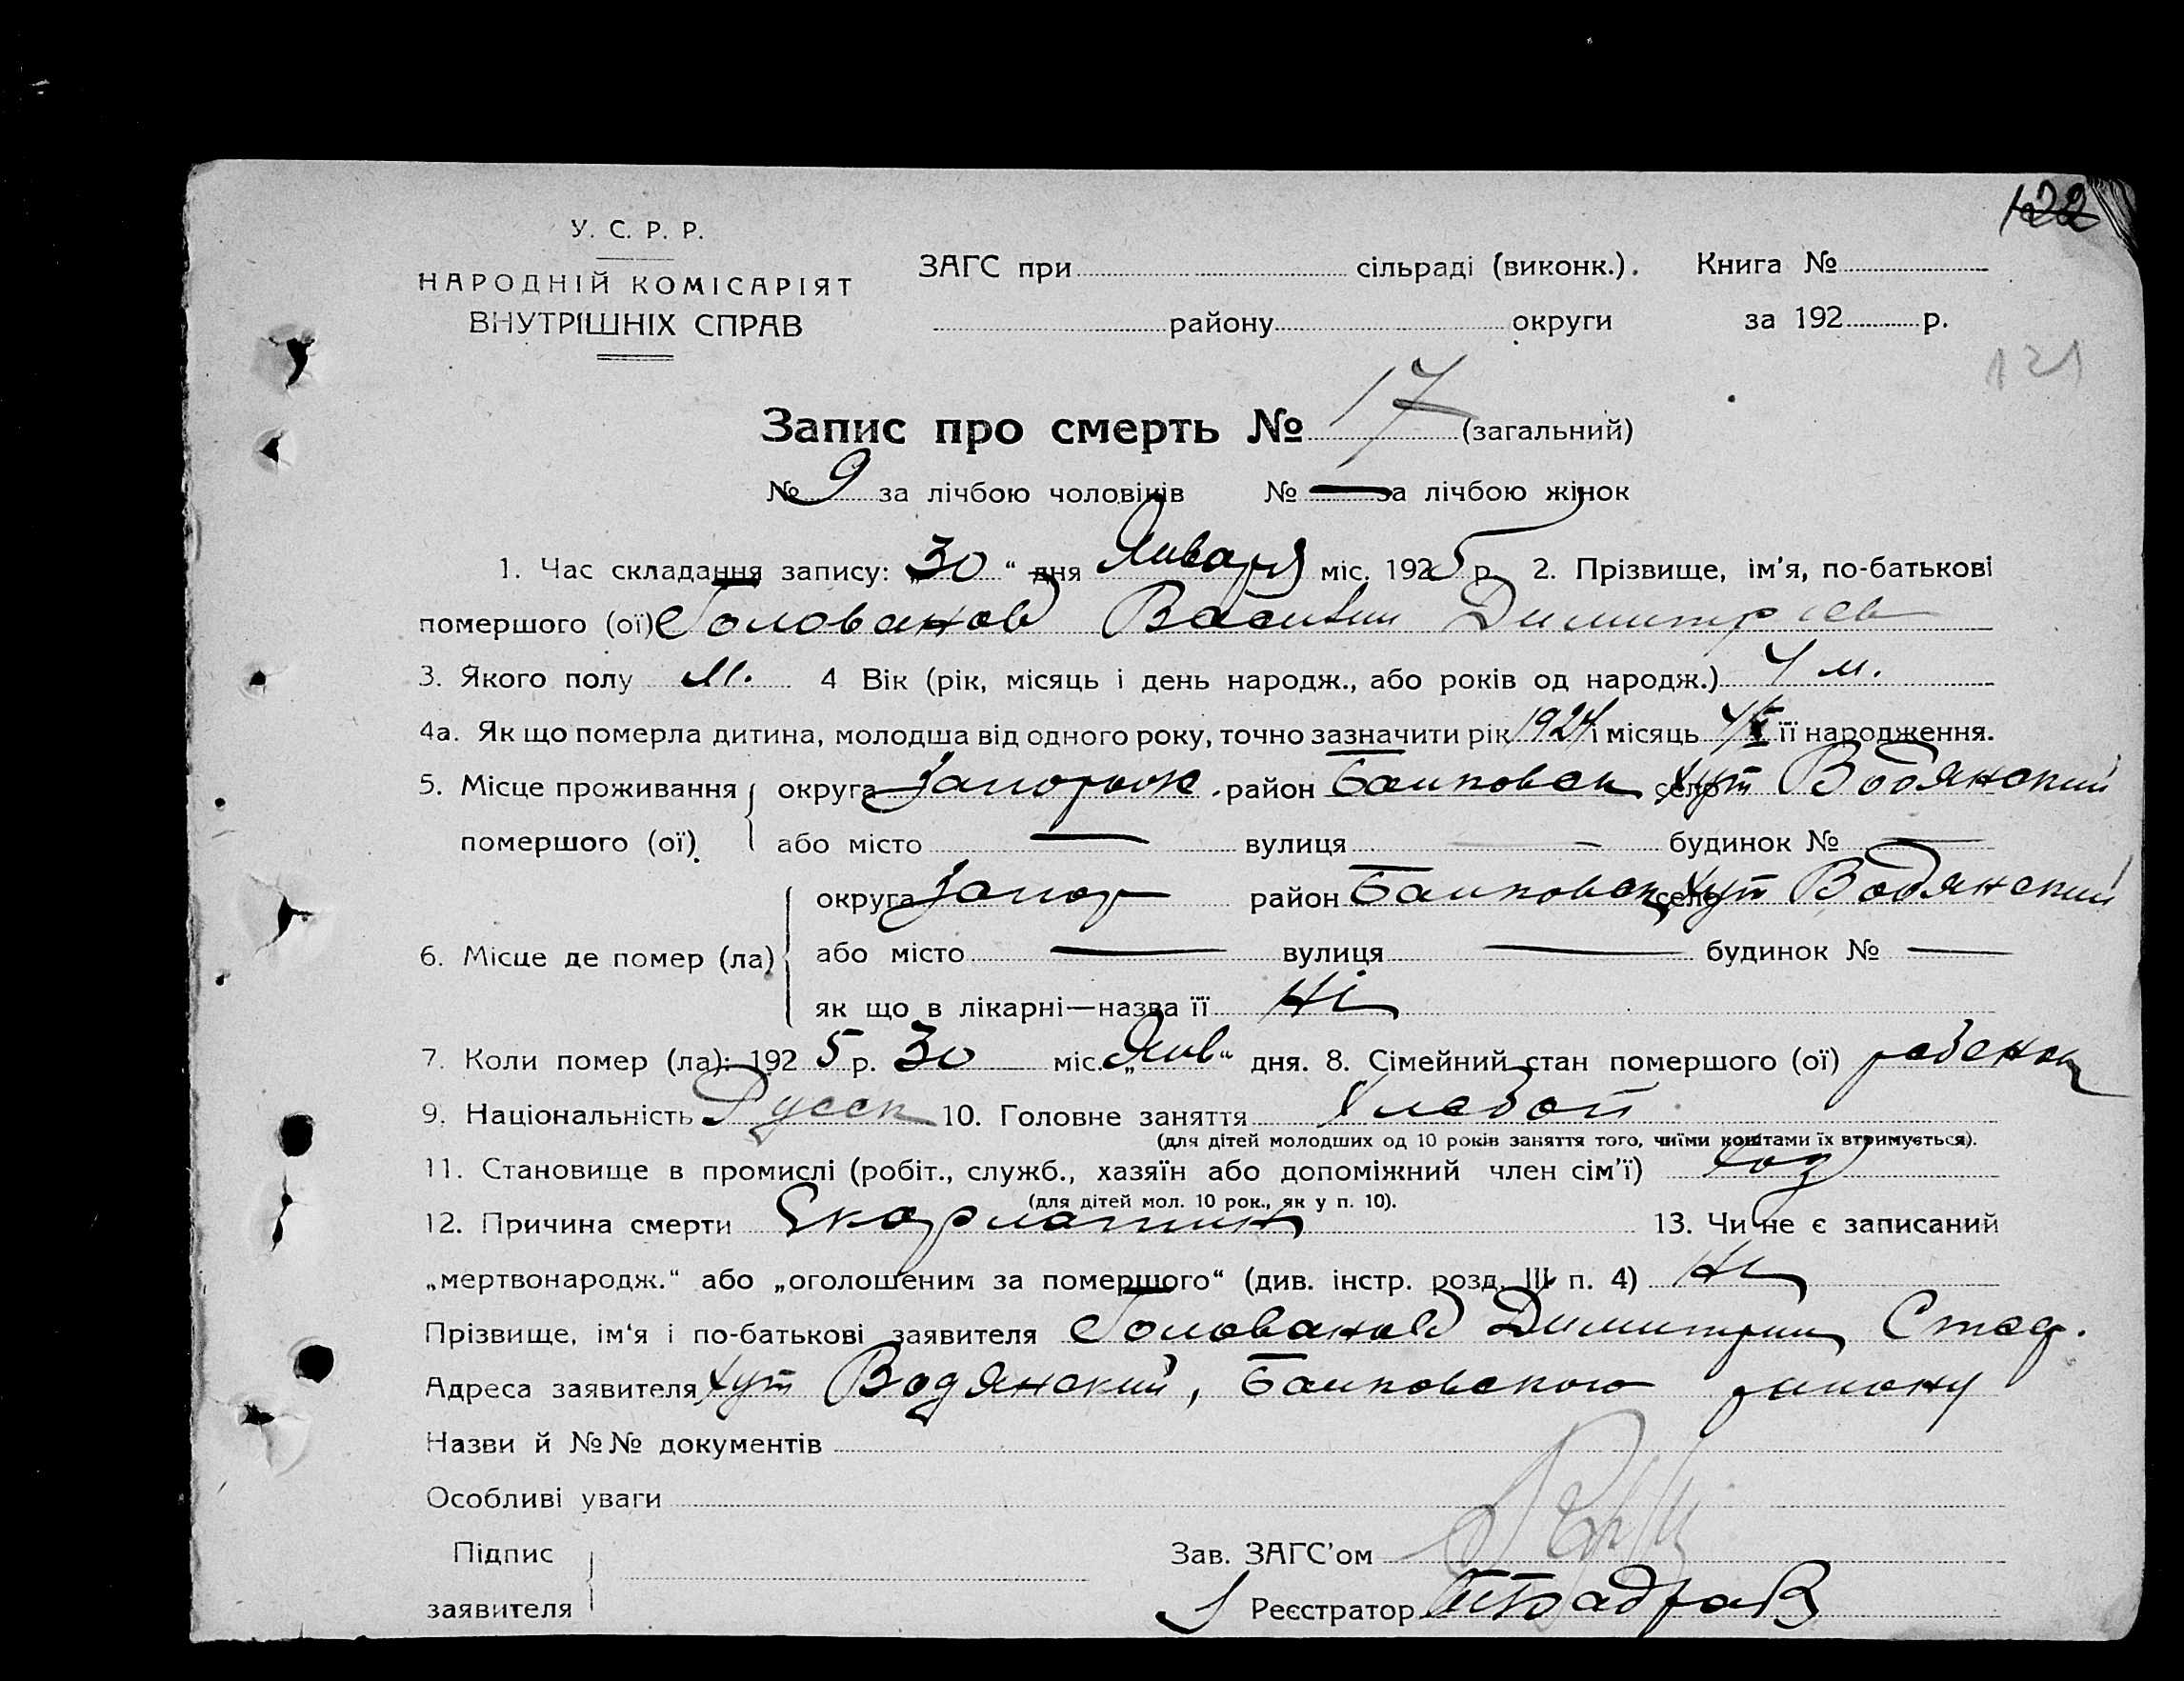 122
У. С. Р. Р.
НАРОДНІЙ КОМІСАРІЯТ
ВНУТРІШНІХ СПРАВ
ЗАГС при сільраді (виконк.). Книга №
району округи за 192 р.
121
Запис про смерть № 17 (загальний)
№ 9 за лічбою чоловіків № — за лічбою жінок
1. Час складання запису: „30“ дня Января міс. 1925 р. 2. Прізвище, ім'я, по-батькові
помершого (ої) Голованов Василий Димитриев
3. Якого полу М. 4 Вік (рік, місяць і день народж., або років од народж.) 4 м.
4а. Як що померла дитина, молодша від одного року, точно зазначити рік 1924 і місяць її народження.
5. Місце проживання округа Запорож. район Башковск село хут Водянский
помершого (ої) або місто — вулиця — будинок № —
округа Запор район Башковск село хут Водянский
6. Місце де помер (ла) або місто — вулиця — будинок № —
як що в лікарні—назва її Ні
7. Коли помер (ла): 1925 р. 30 міс. „Янв“ дня. 8. Сімейний стан помершого (ої) ребенок
9. Національність Русск 10. Головне заняття Хлебоп
(для дітей молодших од 10 років заняття того, чиїми коштами їх втримується).
11. Становище в промислі (робіт., служб., хазяїн або допоміжний член сім'ї) хоз
(для дітей мол. 10 рок., як у п. 10).
12. Причина смерти Скарлатин 13. Чи не є записаний
„мертвонародж.“ або „оголошеним за помершого“ (див. інстр. розд. III п. 4) Ні
Прізвище, ім'я і по-батькові заявителя Голованов Димитрий
Адреса заявителя хут Водянский, Башковского району
Назви й №№ документів
Особливі уваги
Підпис
заявителя
Зав. ЗАГС'ом
Реєстратор